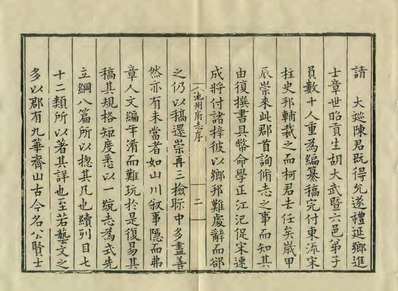 請　大廵陳君既得允遂禮延鄉進
士章世昭貢生胡大武暨六邑弟子
員數十人重為編纂稿完付東流宋
柱史邦輔裁之而柯君士任矣歲甲
辰崇來此郡首詢脩志之事而知其
由復撰書具幣命學正江汜促宋速
成將付諸梓彼以鄉邦難處辭而卻
池州府志序　二
之仍以稿還崇再三檢騐中多盡善
然亦有未當者如山川叙事隱而弗
章人文編年淆而難玩於是復易其
稿其規格短度悉以一統志為式先
立綱八篇所以揔其凡也續列目七
十二類所以著其詳也至若藝文之
多以郡有九華齊山古今名公賢士